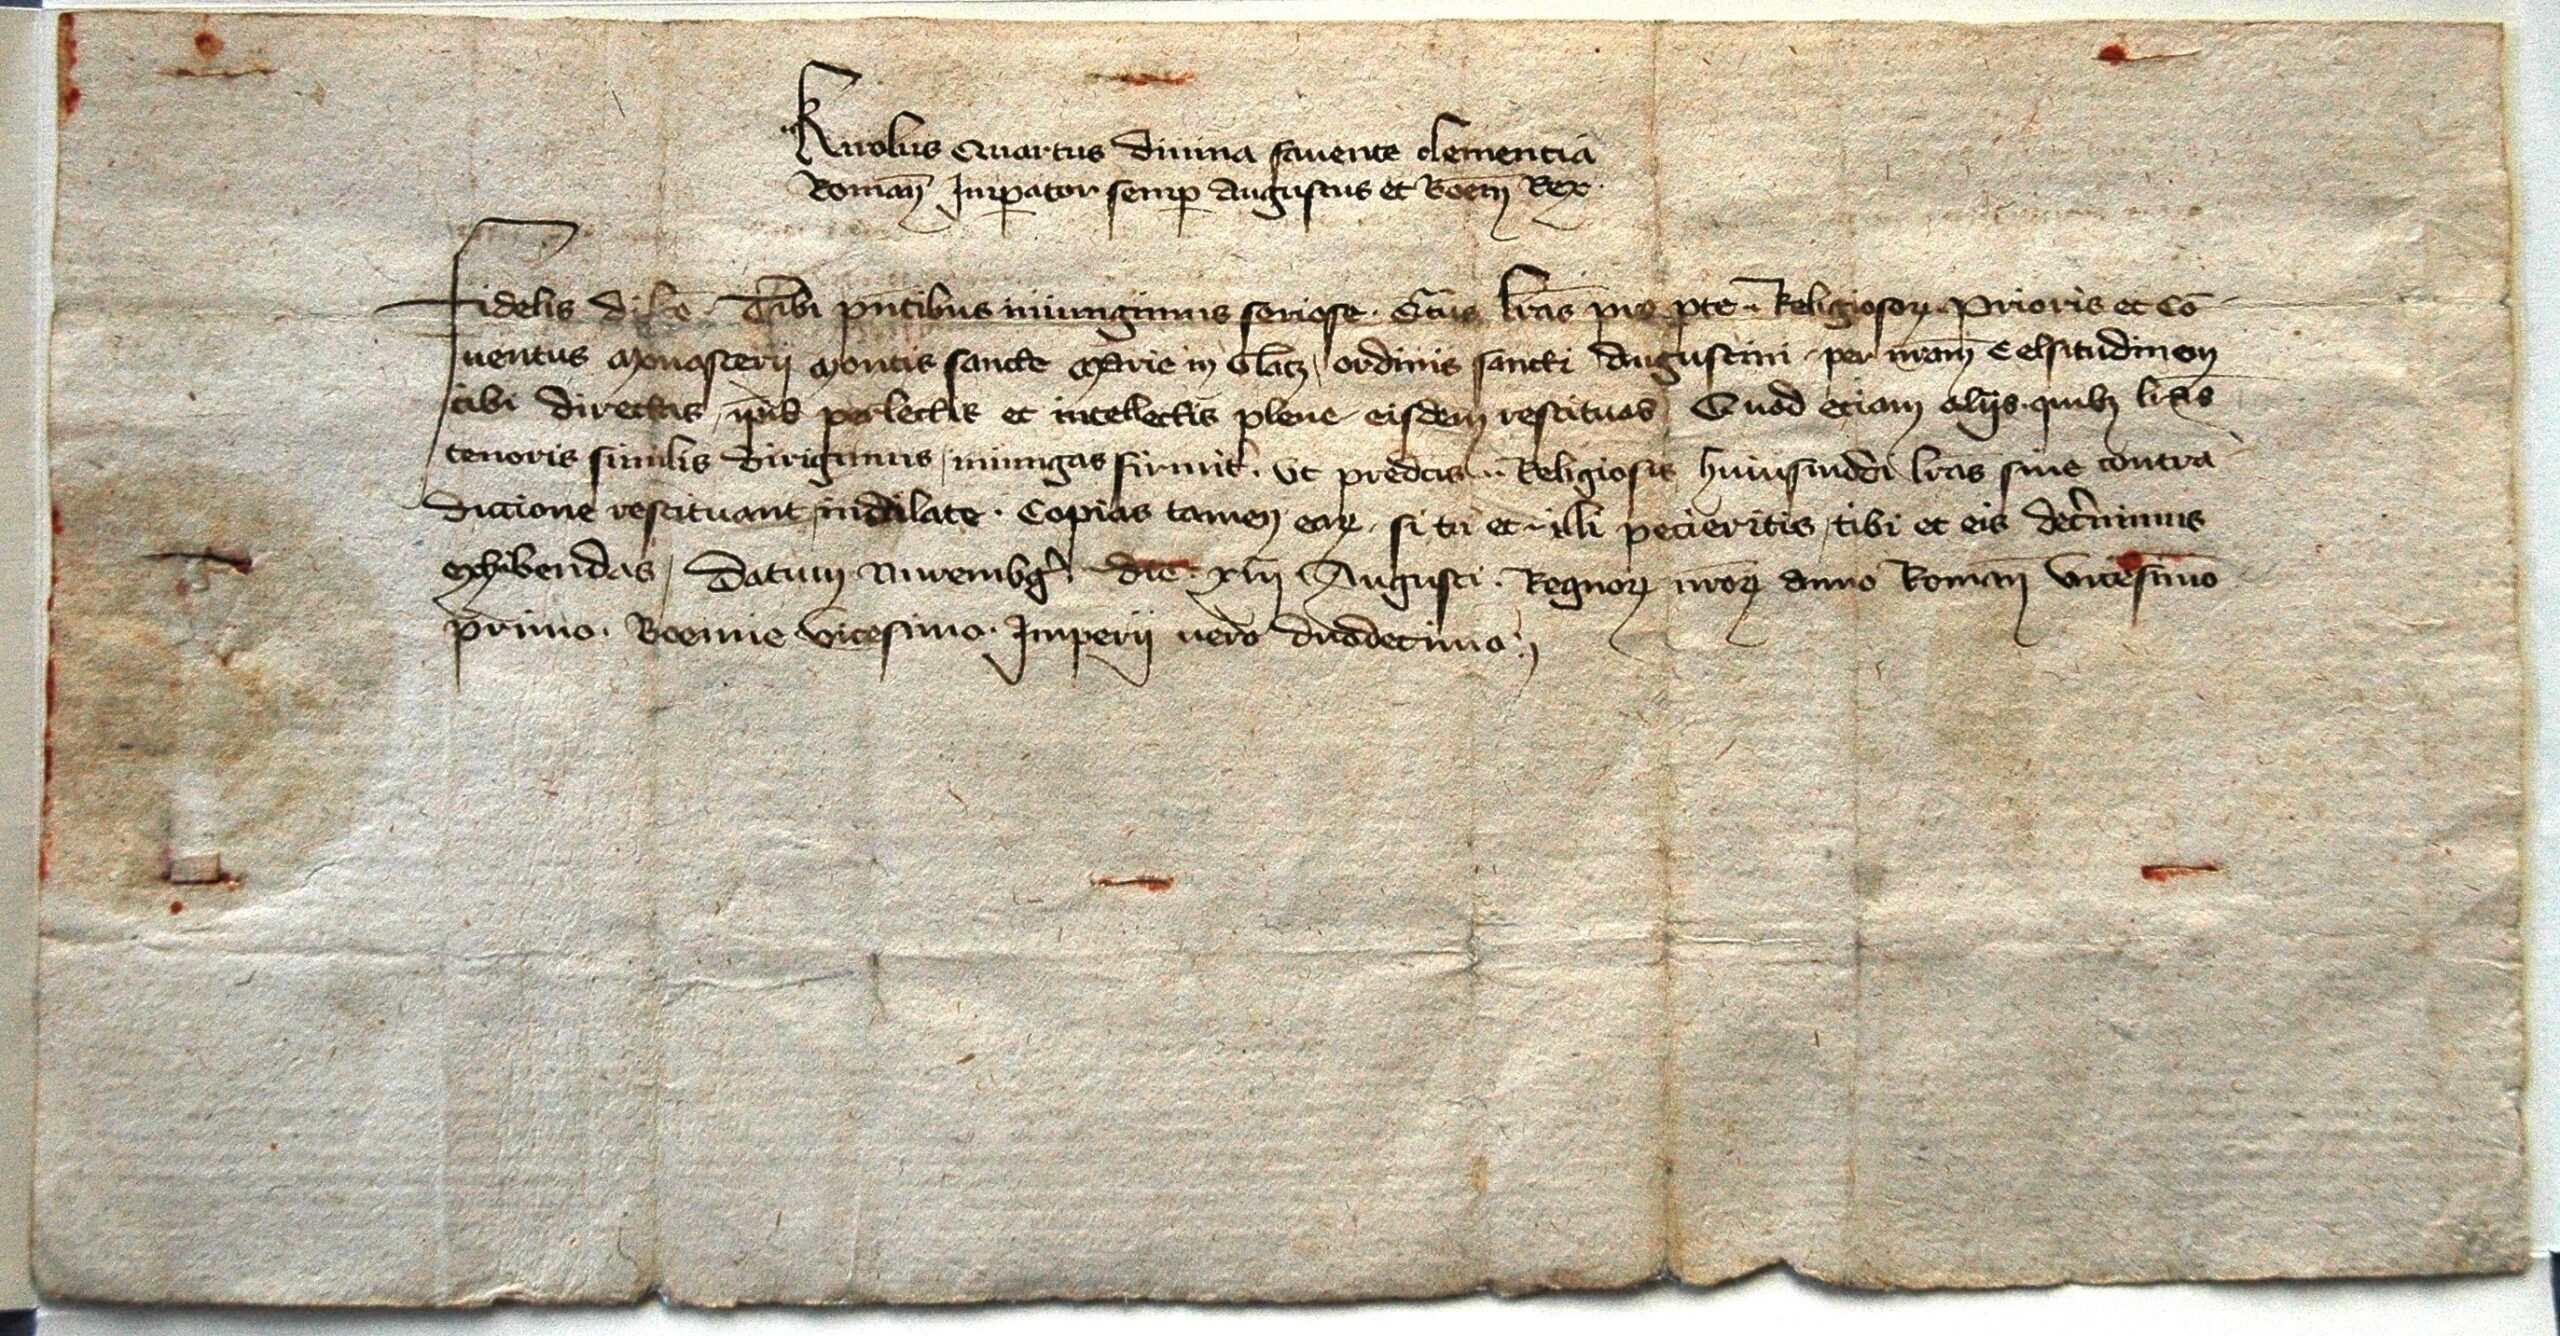 Karolus Quartus diuina fauente clementia
Romañ Imꝑator semꝑ Augustus et Boem̄ Rex.
Fidelis dilc̄e. Tibi pn̄tibus iniungimus seriose. Qtus l̄ras pro pte .. Religiosoꝝ .. Prioris et Cō
uentus Monasterij Montis sancte Marie in Glacz, ordinis sancti Augustini, per nr̄am Celsitudinem
tibi directas, ip̄is perlectis et intellectis plene, eisdem restituas, Quod eciam alijs quibꝫ l̄ras
tenoris similis dirigimus, iniungas firmit̄. vt predc̄is .. Religiosis, huiusmodi l̄ras sine contra
diccione restituant, indilate. Copias tamen eaꝝ, si tu et illi pecieritis, tibi et eis dec̄nimus
exhibendas, Datum Nurembḡ. die. xiij Augusti. Regnoꝝ nr̄oꝝ anno Romañ vicesimo
primo. Boemie vicesimo. Imperij vero duodecimo.